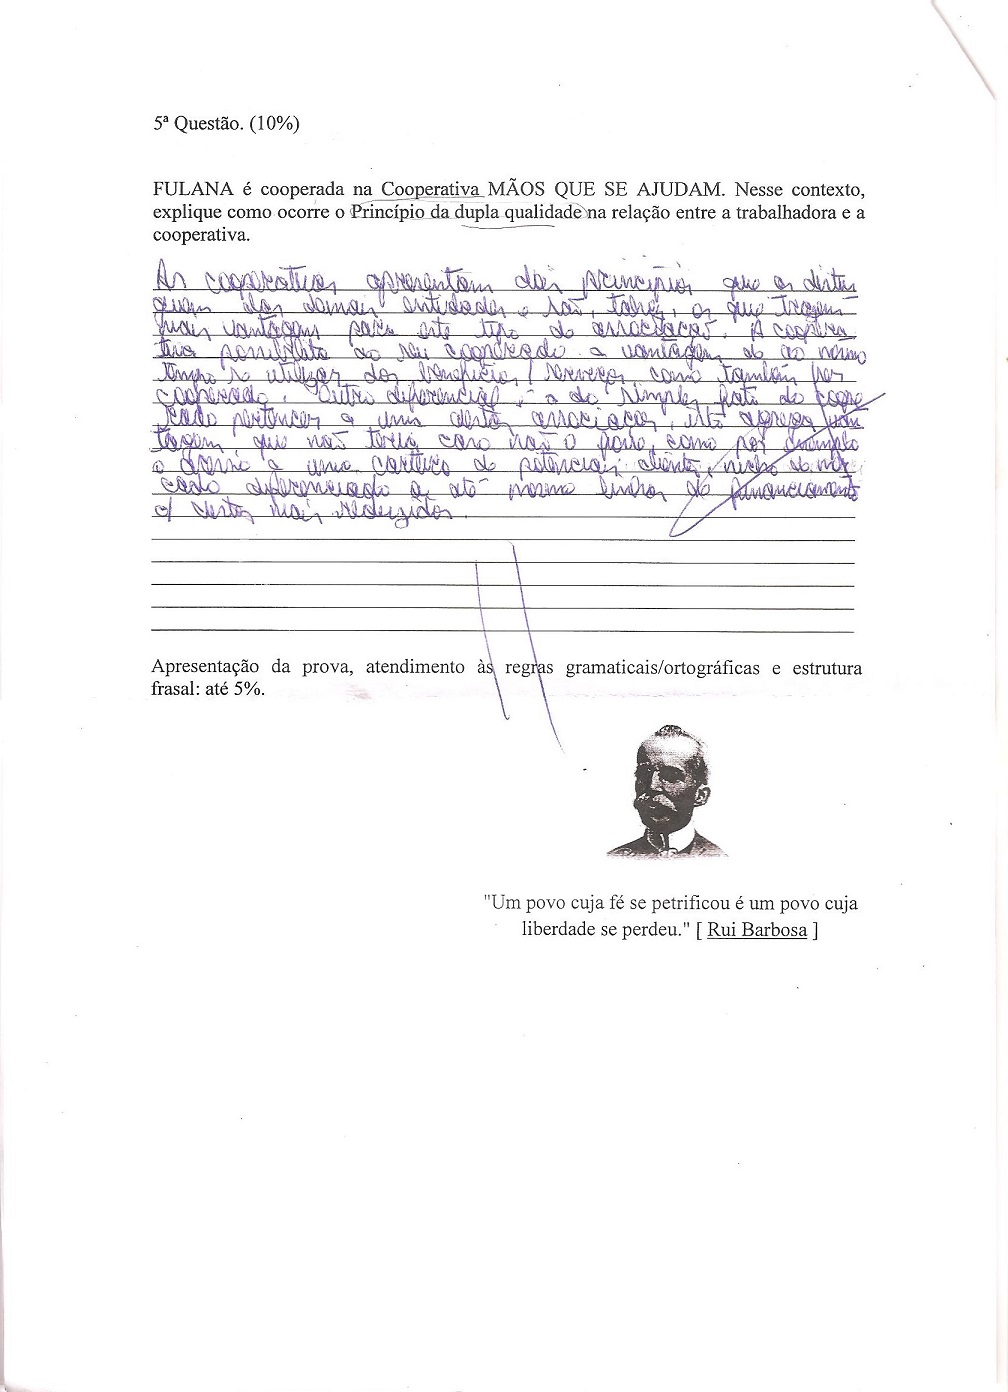 5ª Questão. (10%)
FULANA é cooperada na Cooperativa MÃOS QUE SE AJUDAM. Nesse contexto,
explique como ocorre o Princípio da dupla qualidade na relação entre a trabalhadora e a
cooperativa.
As cooperativas apresentam dois princípios que as distin
guem das demais entidades e são, talvez, os que trazem
mais vantagens para este tipo de associação. A coopera
tiva possibilita ao seu cooperado a vantagem de ao mesmo
tempo se utilizar dos benefícios / serviços como também ser
cooperado. Outro diferencial é a do simples fato do coope
rado pertencer a uma destas associações, isto agrega van
tagem que não teria caso não o fosse, como por exemplo
o acesso a uma carteira de potenciais clientes, nicho de mer
cado diferenciado e até mesmo linhas de financiamento
c/ custos mais reduzidos.
Apresentação da prova, atendimento às regras gramaticais/ortográficas e estrutura
frasal: até 5%.
"Um povo cuja fé se petrificou é um povo cuja
liberdade se perdeu." [ Rui Barbosa ]